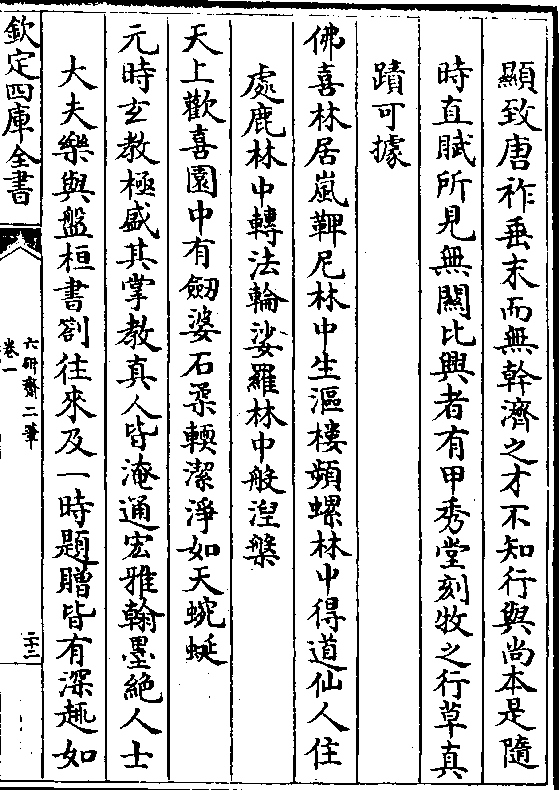 顯致唐祚垂末而無幹濟之才不知行與尚本是隨
時直賦所見無關比興者有甲秀堂刻牧之行草真
蹟可據
佛喜林居嵐鞞尼林中生漚樓頻螺林中得道仙人住
處鹿林中轉法輪娑羅林中般涅槃
天上歡喜園中有劒婆石柔輭潔淨如天蜿蜒
元時玄教極盛其掌教真人皆淹通宏雅翰墨絶人士
大夫樂與盤桓書劄往來及一時題贈皆有深趣如
欽定四庫全書
六研齋二筆
卷一
二十二